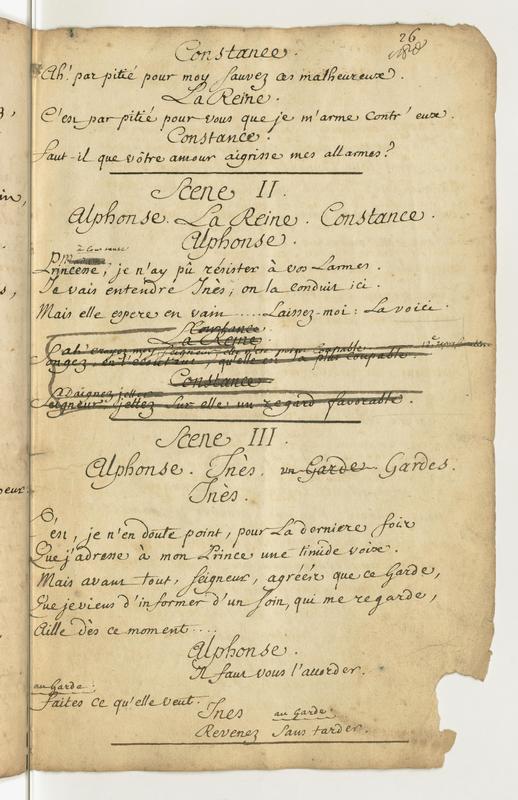 26
Constance.
Ah! par pitié pour moy sauvez ces malheureux.
La Reine.
C'est par pitié pour vous que je m'arme contr' eux.
Constance.
Faut-il que vôtre amour aigrisse mes allarmes?
Scene II.
Alphonse. La Reine. Constance.
Alphonse.
à Constance
Princesse, je n'ay pû résister à vos Larmes.
Je vais entendre Inès; on la conduit ici.
Mais elle espere en vain ..... Laissez-moi: La voici.
Constance.
La Reine.
ah! croyez moy Seigneur, elle n'est point coupable.
Songez, en l'écoutant, qu'elle est la plus coupable.
Constance
Daignez jetter
Seigneur, jettez sur elle un regard favorable.
Scene III.
Alphonse. Inès. un Garde. Gardes.
Inès.
C'est, je n'en doute point, pour La derniere fois
Que j'adresse à mon Prince une timide voix.
Mais avant tout, Seigneur, agréér que ce Garde,
Que je viens d'informer d'un soin, qui me regarde,
Aille dès ce moment ....
Alphonse.
Il faut vous l'accorder.
au Garde:
Faites ce qu'elle veut.
Ines au Garde.
Revenez sans tarder.